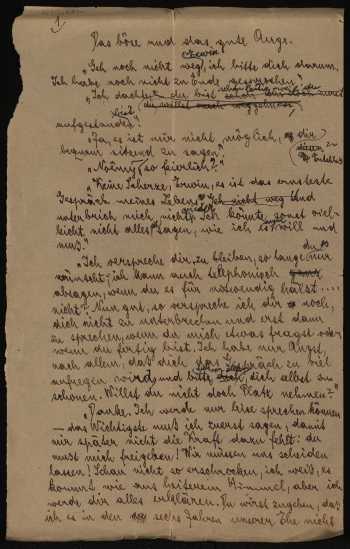 1
Das böse und das gute Auge.
„Geh noch nicht weg, Erwin, ich bitte dich darum.
Ich habe noch nicht zu Ende gesprochen."
„Ich dachte, du
du willst noch weggehen,
aufgestanden?"
„Ja, es ist mir nicht möglich, dir
dieses zu
bequem sitzend zu sagen."
„Na, so feierlich?"
„Keine Scherze, Erwin, es ist das ernsteste
Gespräch meines Lebens. Geh nicht weg und
unterbrich mich nicht. Ich könnte sonst viel-
leicht nicht alles sagen, wie ich es will und
muß."
„Ich verspreche dir, zu bleiben, so lange du es nur
wünscht; ich kann auch telephonisch
absagen, wenn du es für notwendig hältst ....
nicht? Nun gut, so verspreche ich dir noch,
dich nicht zu unterbrechen und erst dann
zu sprechen, wenn du mich etwas fragst oder
wenn du fertig bist. Ich habe nur Angst,
nach allem, daß dich das Gespräch zu viel
aufregen wird und bitte dich, dich selbst zu
schonen. Willst du nicht doch Platz nehmen?"
„Danke. Ich werde nur leise sprechen können
— das Wichtigste muß ich zuerst sagen, damit
mir später nicht die Kraft dazu fehlt: du
mußt mich freigeben! Wir müssen uns scheiden
lassen! Schau nicht so erschrocken, ich weiß, es
kommt wie aus heiterem Himmel, aber ich
werde dir alles erklären. Du wirst zugeben, daß
ich es in den sechs Jahren unserer Ehe nicht